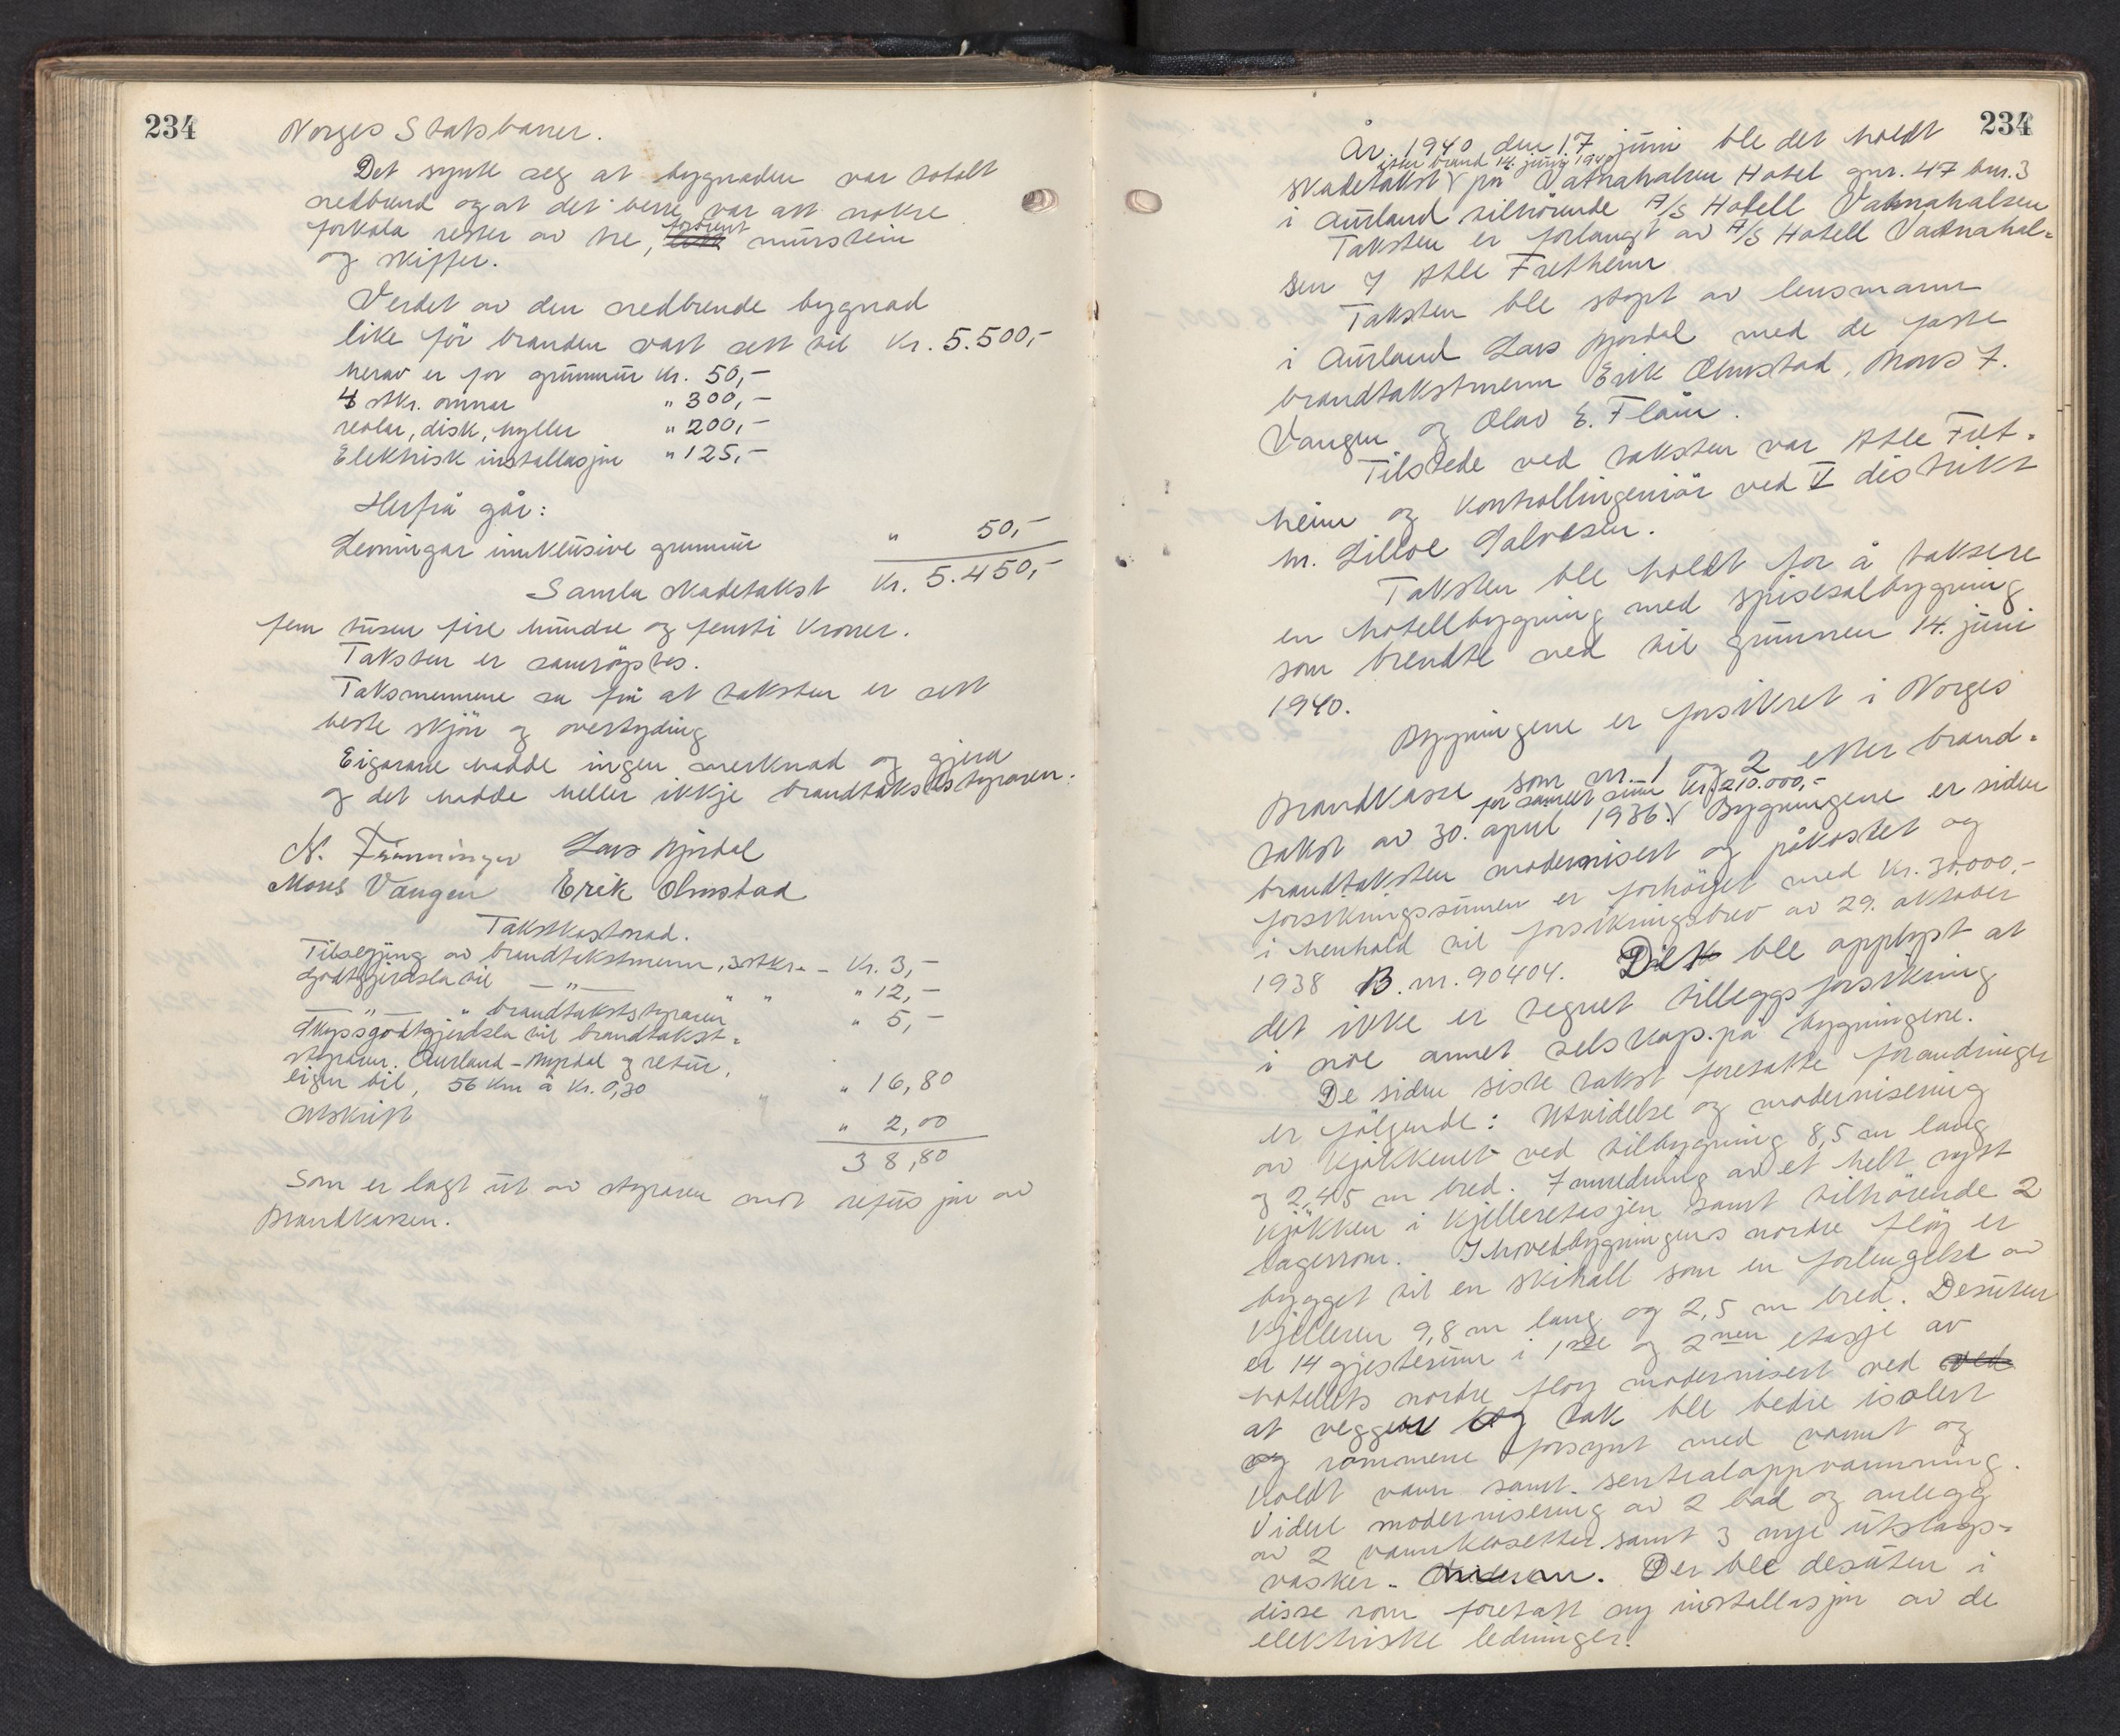 234
Norges Statsbaner.
Det synte seg at bygnaden var totalt
nedbrend og at det berre var att nokre
forkola rester av tre, forbrent murstein
og skiffer.
Verdet av den nedbrende bygnad
like för branden vart sett til Kr. 5.500,-
herav er for grunnmur Kr. 50,-
4 stkr. omnar " 300,-
reolar, disk, hyller " 200,-
Elektrisk installasjon " 125,-
Herfrå går:
Levningar inklusive grunnmur " 50,-
Samla skadetakst Kr. 5.450,-
fem tusen fire hundre og femti kroner.
Taksten er samröystes.
Taksmennene sa frå at taksten er sett
beste skjön og overtyding
Eigarane hadde ingen merknad og gjera
og det hadde heller ikkje brandtakststyraren.
N. Frönninger Lars Björdal
Mons Vangen Erik Ohnstad
Takstkostnad.
Tilsegjing av brandtakstmenn, 3 stkr. - Kr. 3,-
Godtgjerdsla til — " — " 12,-
— " — " brandtakststyraren " " " 5,-
Skyssgodtgjerdsla til brandtakst-
styraren. Aurland - Myrdal og retur,
eigen bil, 56 km á Kr. 0,30 " " 16,80
Avskrift " 2,00
38,80
Som er lagt ut av styraren mot refusjon av
Brandkassen.
234
År 1940 den 17 juni ble det holdt
etter brand 14. juni 1940
skadetakst på Vatnahalsen Hotel gnr. 47 bnr. 3
i Aurland tilhörende A/S Hotell Vatnahalsen
Taksten er forlangt av A/S Hotell Vatnahal-
sen v/ Atle Fretheim
Taksten ble styrt av lensmann
i Aurland Lars Björdal med de faste
brandtakstmenn Erik Ohnstad, Mons J.
Vangen og Olav E. Flåm.
Tilstede ved taksten var Atle Fret-
heim og Kontrollingeniör ved V distrikt
hr. Lilloe Salvesen.
Taksten ble holdt for å taksere
en hotellbygning med spisesalbygning
som brendte ned til grunnen 14. juni
1940.
Bygningene er forsikret i Norges
Brandkasse som nr. 1 og 2 etter brand-
for samlet sum kr. 210.000,-
takst av 30. april 1936. Bygningene er siden
brandtaksten modernisert og påkostet og
forsikringssummen er forhöyet med Kr. 30.000,-
i henhold til forsikringsbrev av 29. oktober
1938 B. nr. 90404. Det ble opplyst at
det ikke er tegnet tilleggsforsikring
i noe annet selskap på bygningene.
De siden siste takst foretatte forandringer
er fölgende: Utvidelse og modernisering
av kjökkenet ved tilbygning 8,5 m lang
og 2,45 m bred. Innredning av et helt nytt
kjökken i kjelleretasjen samt tilhörende 2
lagerrom. I hovedbygningens nordre flöy er
bygget til en skihall som en forlengelse av
kjelleren 9,8 m lang og 2,5 m bred. Desuten
er 14 gjesterum i 1ste og 2nen etasje av
hotellets nordre flöy modernisert ved ved
at veggene og tak ble bedre isolert
og rommene forsynt med varmt og
koldt vann samt sentraloppvarmning.
Videre modernisering av 2 bad og anlegg
av 2 vannklosetter samt 3 nye utslags-
vasker. Der ble desuten i
disse rom foretatt ny installasjon av de
elektriske ledninger.